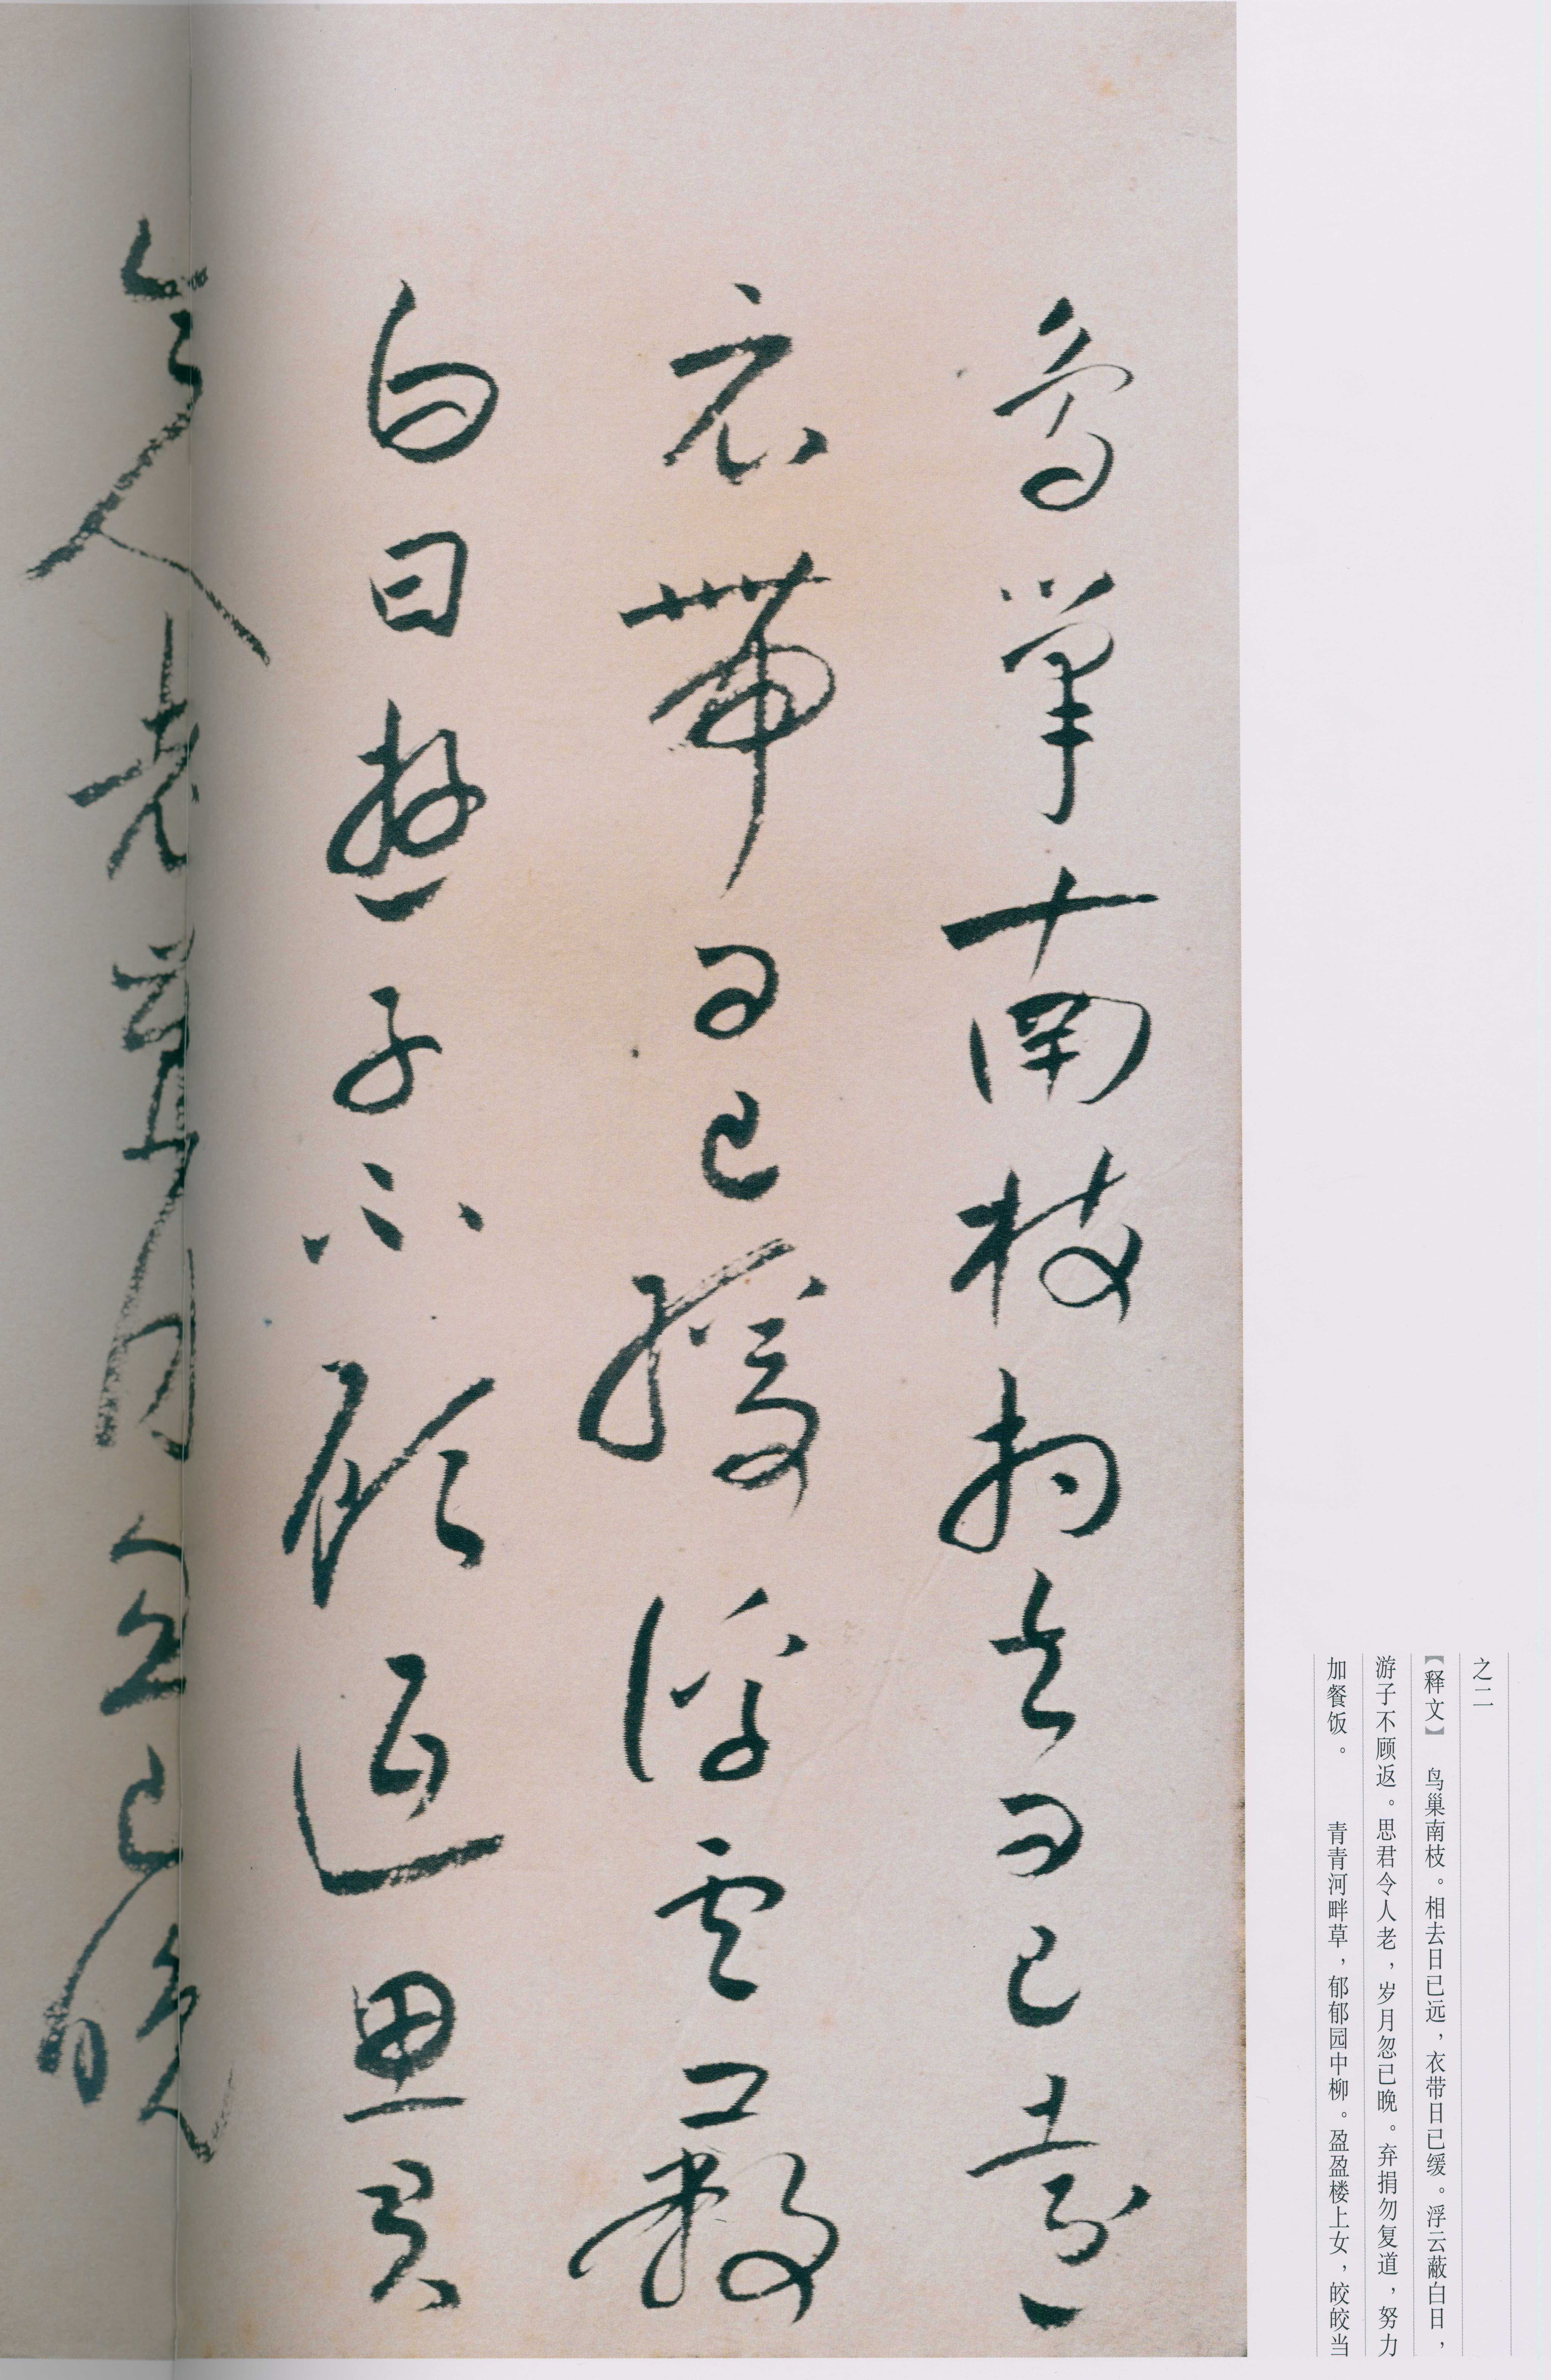 之二
【释文】 鸟巢南枝。相去日已远，衣带日已缓。浮云蔽白日，
游子不顾返。思君令人老，岁月忽已晚。弃捐勿复道，努力
加餐饭。 青青河畔草，郁郁园中柳。盈盈楼上女，皎皎当
鸟巢南枝相去日已远
衣带日已缓浮云蔽
白日游子不顾返思君
令人老岁月忽已晚